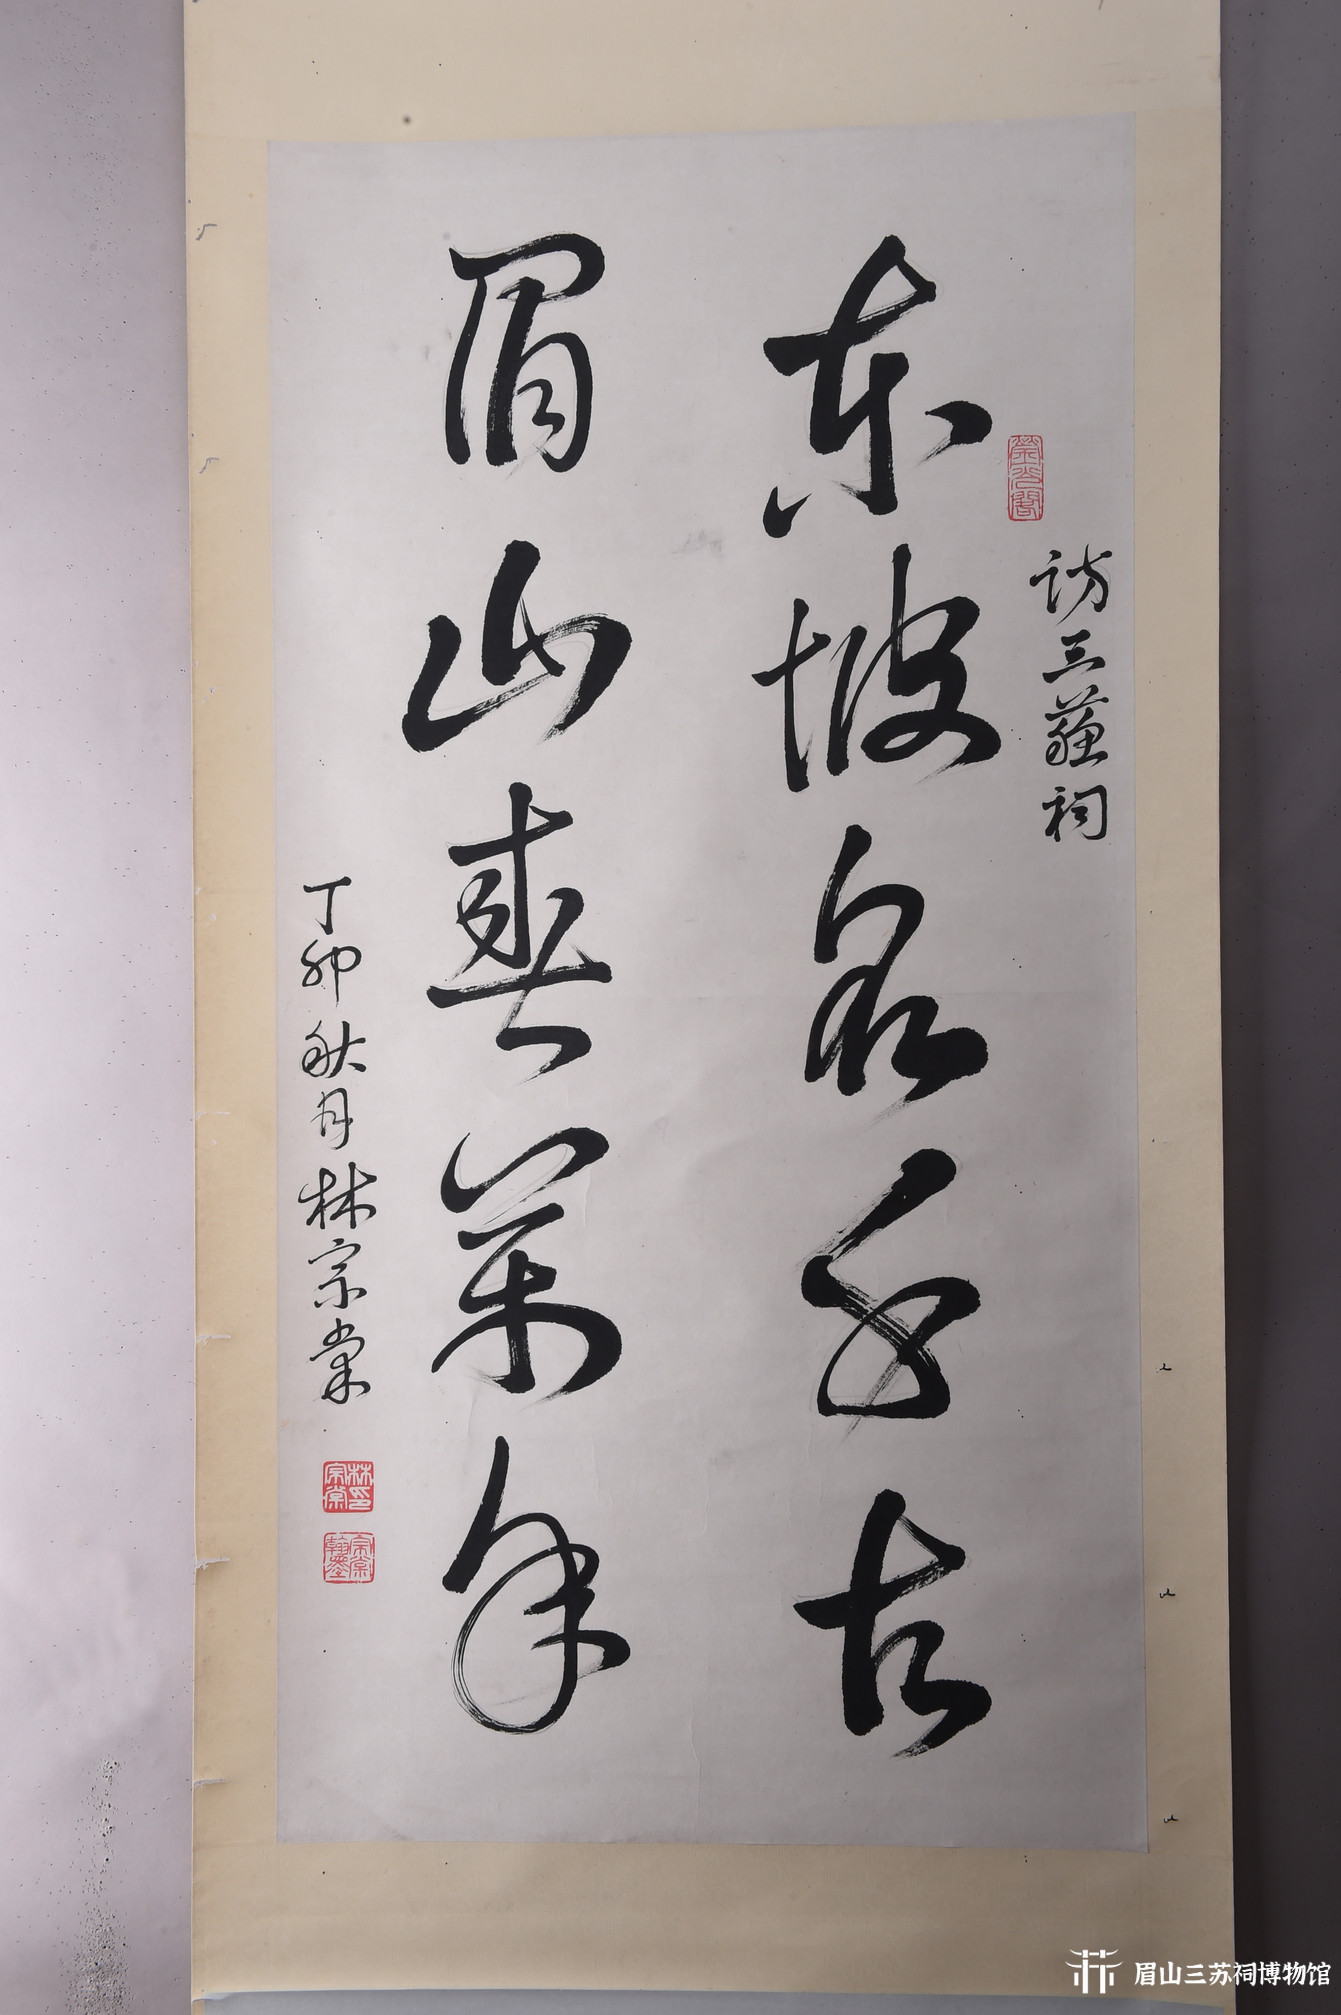 訪三蘇祠
東坡名千古
眉山春萬年
丁卯秋月林宗棠
林宗棠印
宗棠翰墨
眉山三苏祠博物馆